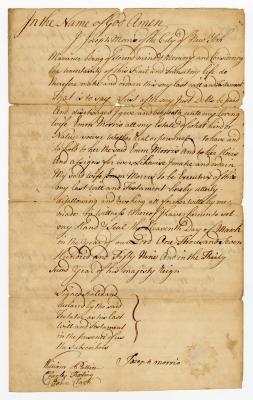 In the Name of God Amen
I Joseph Morris of the City of New York
Mariner being of Sound mind & Memory and Considering
the uncertainty of this frail and transitory life do
therefore make and ordain this my last will and testament
That is to say first after my Just Debts be paid
And discharged I give and bequeath unto my loving
wife Emm Morris all my Estate of what kind or
Nature soever whether Real or personal to have and
to hold to her the said Emm Morris and to her Heirs
and assigns for ever Likewise I make and ordain
My said wife Emm Morris to be Executrix of this
my last will and Testament hereby utterly
disallowing and revoking all former wills by me
made In Witness whereof I have hereunto set
my Hand & Seal the Eleventh Day of March
in the Year of our Lord One thousand Seven
Hundred and Fifty Nine And in the Thirty
Second Year of his majestys Reign
Signed Sealed and
declared by the said
Testator as his last
will and Testament
in the presence of us
the Subscribers
Joseph morris
William
Charles
John